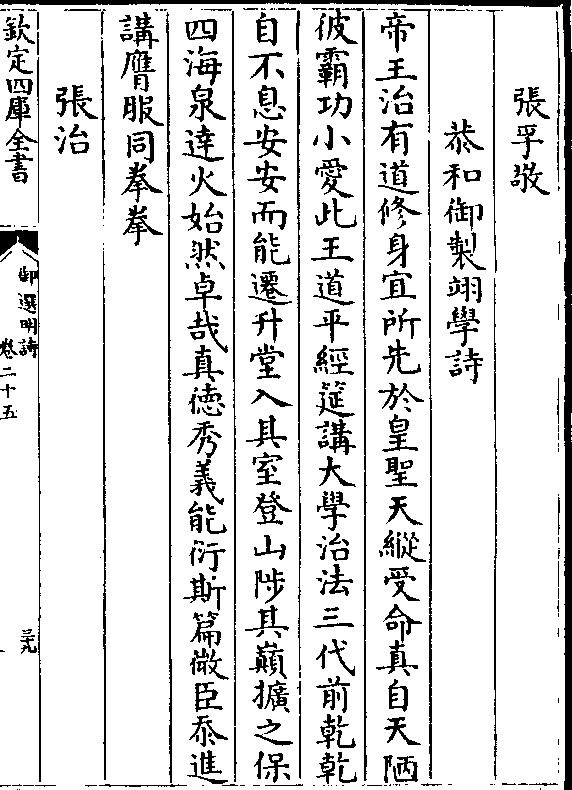 張孚敬
恭和御製翊學詩
帝王治有道修身宜所先於皇聖天縱受命真自天陋
彼霸功小愛此王道平經筵講大學治法三代前乾乾
自不息安安而能遷升堂入其室登山陟其巔擴之保
四海泉達火始然卓哉真德秀義能衍斯篇微臣忝進
講膺服同拳拳
張治
欽定四庫全書
御選明詩
卷二十五
三九